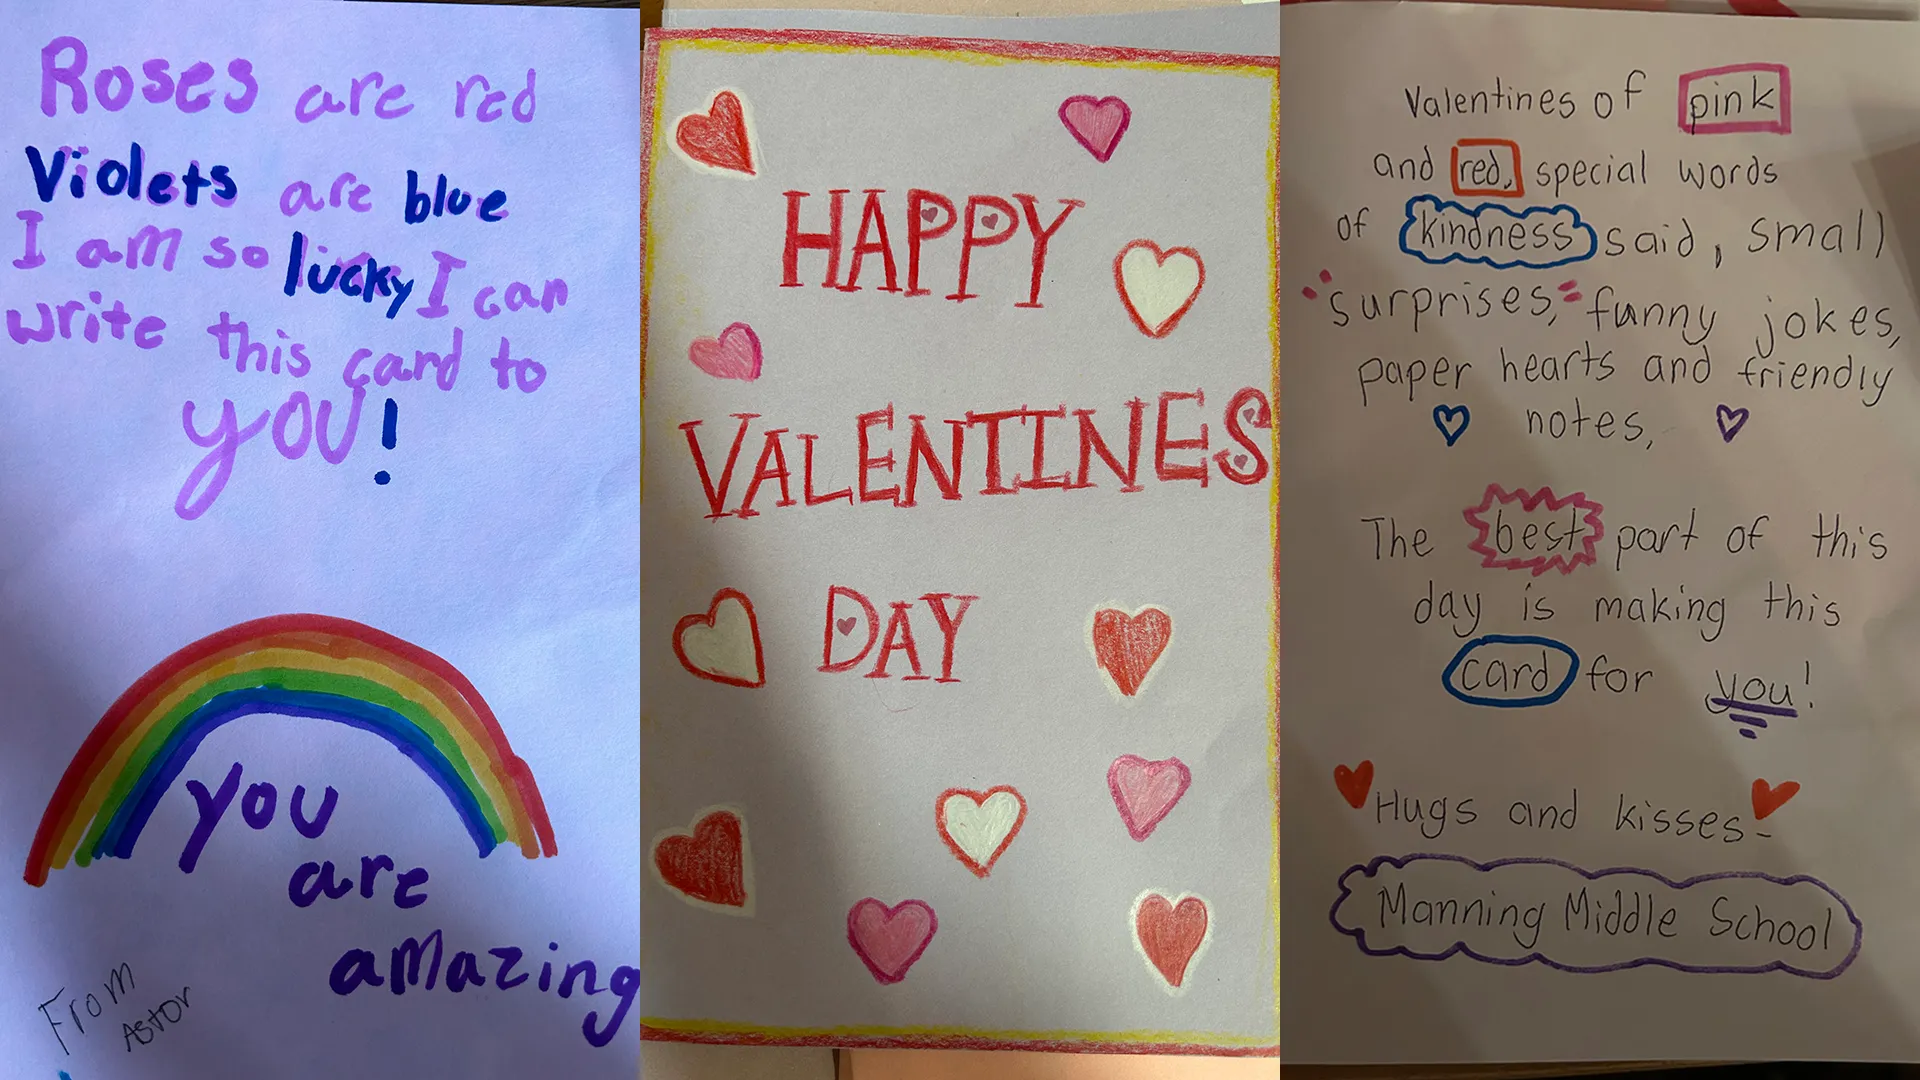 Roses are red
Violets are blue
I am so lucky I can
write this card to
you!
you
are
amazing
From
Astor
HAPPY
VALENTINES
DAY
Valentines of pink
and red, special words
of kindness said, small
"surprises," funny jokes,
paper hearts and friendly
notes,
The best part of this
day is making this
card for you!
Hugs and kisses-
Manning Middle School